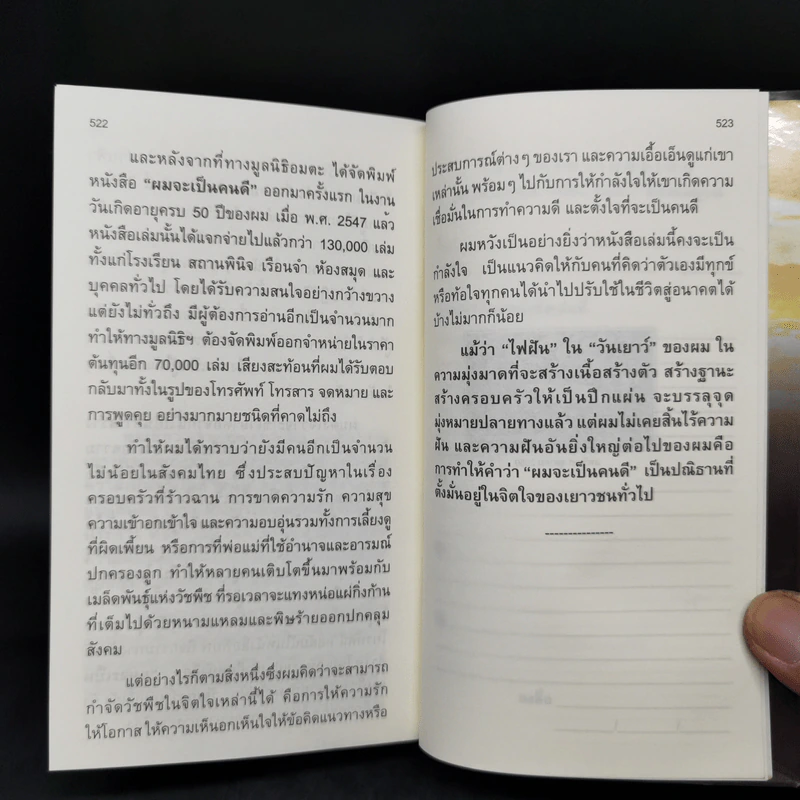 522
และหลังจากที่ทางมูลนิธิอมตะ ได้จัดพิมพ์
หนังสือ “ผมจะเป็นคนดี” ออกมาครั้งแรก ในงาน
วันเกิดอายุครบ 50 ปีของผม เมื่อ พ.ศ. 2547 แล้ว
หนังสือเล่มนั้นได้แจกจ่ายไปแล้วกว่า 130,000 เล่ม
ทั้งแก่โรงเรียน สถานพินิจ เรือนจำ ห้องสมุด และ
บุคคลทั่วไป โดยได้รับความสนใจอย่างกว้างขวาง
แต่ยังไม่ทั่วถึง มีผู้ต้องการอ่านอีกเป็นจำนวนมาก
ทำให้ทางมูลนิธิฯ ต้องจัดพิมพ์ออกจำหน่ายในราคา
ต้นทุนอีก 70,000 เล่ม เสียงสะท้อนที่ผมได้รับตอบ
กลับมาทั้งในรูปของโทรศัพท์ โทรสาร จดหมาย และ
การพูดคุย อย่างมากมายชนิดที่คาดไม่ถึง
ทำให้ผมได้ทราบว่ายังมีคนอีกเป็นจำนวน
ไม่น้อยในสังคมไทย ซึ่งประสบปัญหาในเรื่อง
ครอบครัวที่ร้าวฉาน การขาดความรัก ความสุข
ความเข้าอกเข้าใจ และความอบอุ่นรวมทั้งการเลี้ยงดู
ที่ผิดเพี้ยน หรือการที่พ่อแม่ที่ใช้อำนาจและอารมณ์
ปกครองลูก ทำให้หลายคนเติบโตขึ้นมาพร้อมกับ
เมล็ดพันธุ์แห่งวัชพืช ที่รอเวลาจะแทงหน่อแผ่กิ่งก้าน
ที่เต็มไปด้วยหนามแหลมและพิษร้ายออกปกคลุม
สังคม
แต่อย่างไรก็ตามสิ่งหนึ่งซึ่งผมคิดว่าจะสามารถ
กำจัดวัชพืชในจิตใจเหล่านี้ได้ คือการให้ความรัก
ให้โอกาส ให้ความเห็นอกเห็นใจให้ข้อคิดแนวทางหรือ
523
ประสบการณ์ต่างๆ ของเรา และความเอื้อเอ็นดูแก่เขา
เหล่านั้น พร้อมๆ ไปกับการให้กำลังใจให้เขาเกิดความ
เชื่อมั่นในการทำความดี และตั้งใจที่จะเป็นคนดี
ผมหวังเป็นอย่างยิ่งว่าหนังสือเล่มนี้คงจะเป็น
กำลังใจ เป็นแนวคิดให้กับคนที่คิดว่าตัวเองมีทุกข์
หรือท้อใจทุกคนได้นำไปปรับใช้ในชีวิตสู่อนาคตได้
บ้างไม่มากก็น้อย
แม้ว่า “ไฟฝัน” ใน “วันเยาว์” ของผม ใน
ความมุ่งมาดที่จะสร้างเนื้อสร้างตัว สร้างฐานะ
สร้างครอบครัวให้เป็นปึกแผ่น จะบรรลุจุด
มุ่งหมายปลายทางแล้ว แต่ผมไม่เคยสิ้นไร้ความ
ฝัน และความฝันอันยิ่งใหญ่ต่อไปของผมคือ
การทำให้คำว่า “ผมจะเป็นคนดี” เป็นปณิธานที่
ตั้งมั่นอยู่ในจิตใจของเยาวชนทั่วไป
---------------